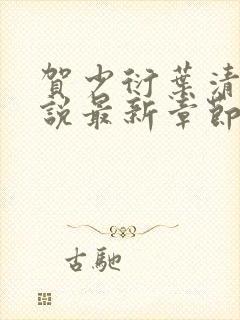 賀少衍葉清
說最新章節
古馳